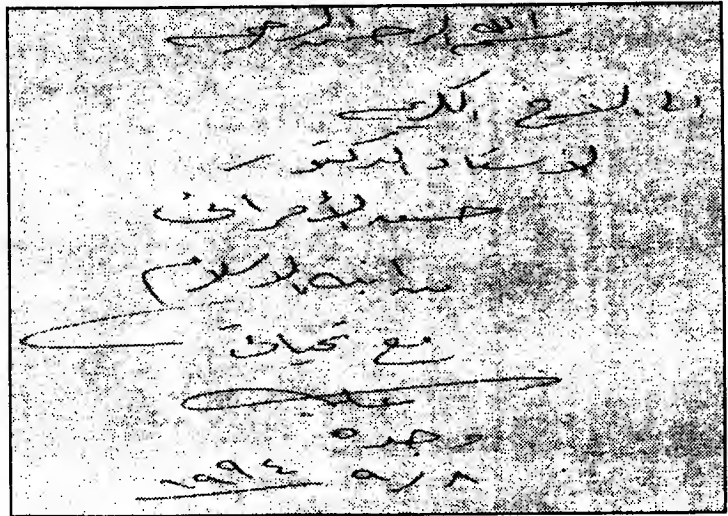 بسم الله الرحمن الرحيم
الى الأخ الكريم
الأستاذ الدكتور
حسن الأمراني
الاسلام
مع تحياتي
وجده
٩/٨ ١٩٩٤